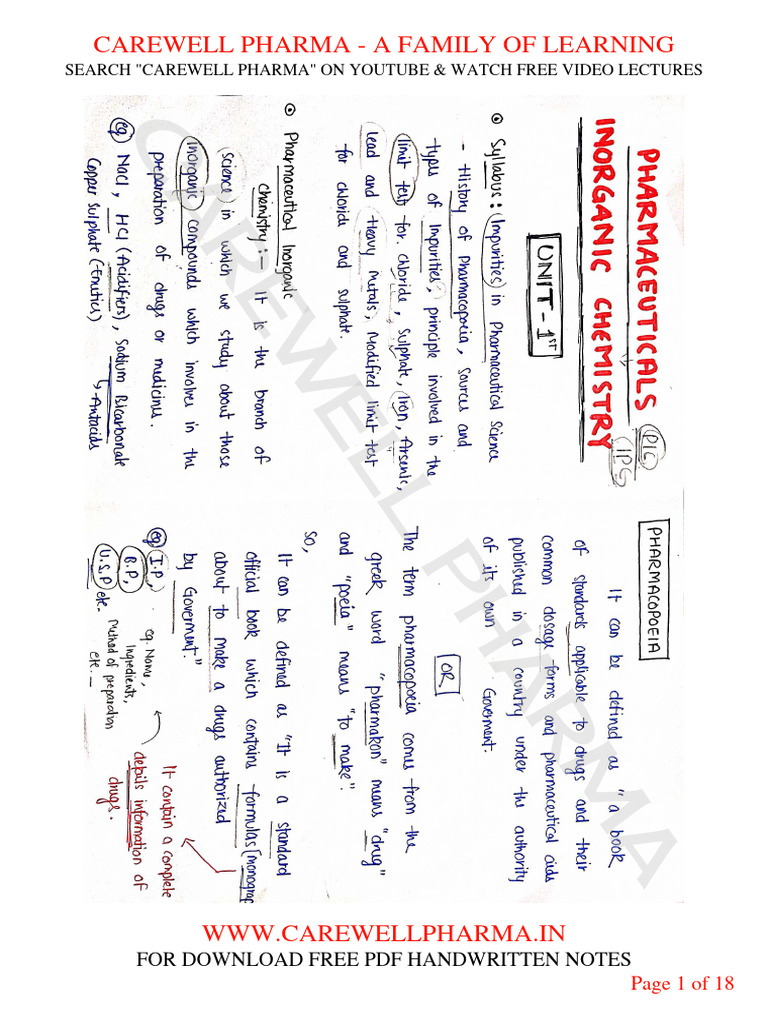 CAREWELL PHARMA - A FAMILY OF LEARNING
SEARCH "CAREWELL PHARMA" ON YOUTUBE & WATCH FREE VIDEO LECTURES
PHARMACEUTICALS
INORGANIC CHEMISTRY
PIC
IPS
UNIT - 1ST
Syllabus : Impurities in Pharmaceutical Science
- History of Pharmacopoeia, Sources and
types of Impurities, principle involved in the
limit test for chloride, Sulphate, Iron, Arsenic,
lead and Heavy metals, Modified limit test
for chloride and sulphate.
Pharmaceutical Inorganic
chemistry :- It is the branch of
science in which we study about those
inorganic compounds which involves in the
preparation of drugs or medicines.
eg NaCl, HCl (Acidifiers), Sodium Bicarbonate
↳ Antacids
Copper Sulphate (-Emetics)
PHARMACOPOEIA
It can be defined as "a book
of standards applicable to drugs and their
common dosage forms and pharmaceutical aids
published in a country under the authority
of its own Goverment.
OR
The term pharmacopoeia comes from the
greek word "pharmakon" means "drug"
and "poeia" means "to make".
So,
It can be defined as "It is a standard
official book which contains formulas/monograp
about to make a drugs authorized
by Goverment."
eg I.P,
B.P,
U.S.P etc.
It contain a complete
details information of
drugs.
eg. Name,
Ingredients,
method of preparation
etc. -
CAREWELL PHARMA
CAREWELL PHARMA
WWW.CAREWELLPHARMA.IN
FOR DOWNLOAD FREE PDF HANDWRITTEN NOTES
Page 1 of 18